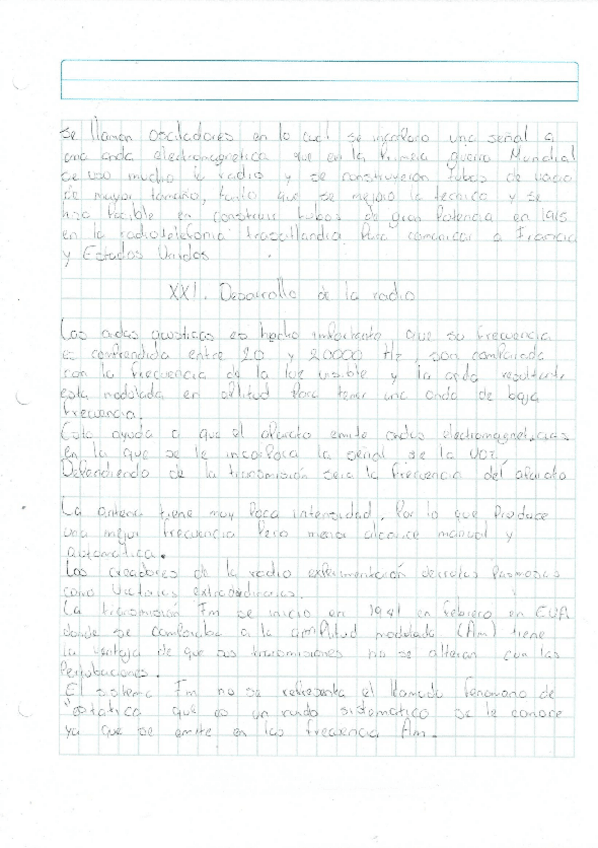 Se llaman osciladores en lo cual se incorporo una señal a
una onda electromagnetica que en la Primera guerra Mundial
se uso mucho la radio y se construyeron tubos de vacio
de mayor tamaño, tanto que se mejoro la tecnica y se
hizo facible en construir tubos de gran Potencia en 1915
en la radiotelefonia trasatlandia Para comunicar a Francia
y Estados Unidos.
XXI. Desarrollo de la radio
Las ondas acusticas es hecho importante que su frecuencia
es comprendida entre 20 y 20000 Hz, son comparada
con la frecuencia de la luz visible y la onda resultante
esta modulada en aplitud Para tener una onda de baja
frecuencia.
Esto ayuda a que el aparato emite ondas electromagneticas
en la que se le incorpora la señal de la voz.
Dependiendo de la transmisión sera la frecuencia del aparato
La antena tiene muy Poca intensidad. Por lo que Produce
una mejor frecuencia Pero menor alcance manual y
automatica.
Los creadores de la radio experimentación Pasmosas
como extraordinarias.
La transmisión Fm se inicio en 1941 en febrero en EUA
donde se comparaba a la amplitud modulada (Am) tiene
la ventaja de que sus transmisiones no se alteran con las
Perturbaciones.
El sistema Fm no se representa el llamado fenomeno de
"estatica que es un ruido sistematico se le conoce
ya que se emite en las frecuencia Am.